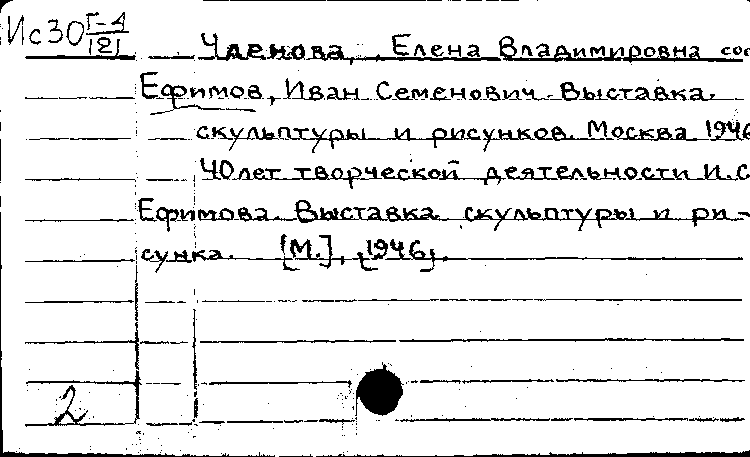 Ис30 Г-4
121
Чденова, Елена Владимировна сос
Ефимов, Иван Семенович. Выставка
скульптуры и рисунков. Москва 1946
40 лет творческой деятельности И.С.
Ефимова. Выставка скульптуры и ри-
сунка. [М.], [1946].
2